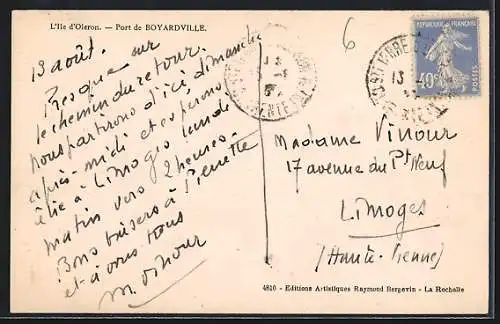 L'Ile d'Oleron. - Port de BOYARDVILLE.
13 août.
Presque sur
le chemin du retour.
nous partirons d'ici, dimanche
après-midi et espérons
être à Limoges lundi
matin vers 2 heures.
Bons baisers à Pierrette
et à vous tous
M. Vinour
6
REPUBLIQUE FRANÇAISE
40c
POSTES
13
Madame Vinour
17 avenue du Pt Neuf
Limoges
(Haute-Vienne)
4810 - Editions Artistiques Raymond Bergevin - La Rochelle